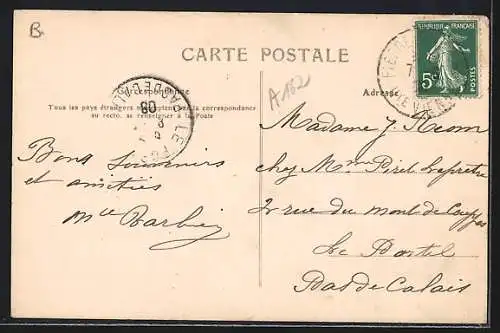 B
CARTE POSTALE
RÉPUBLIQUE FRANÇAISE
5c
POSTES
Correspondance
Adresse
A162
Tous les pays étrangers n'acceptent pas la correspondance
au recto, se renseigner à la Poste
LE PO
PAS DE CAL
08
Bons souvenirs
et amitiés
Mlle Barbier
Madame J.
chez Mme Lepretre
2 rue du mont de
Le Portel
Pas de Calais